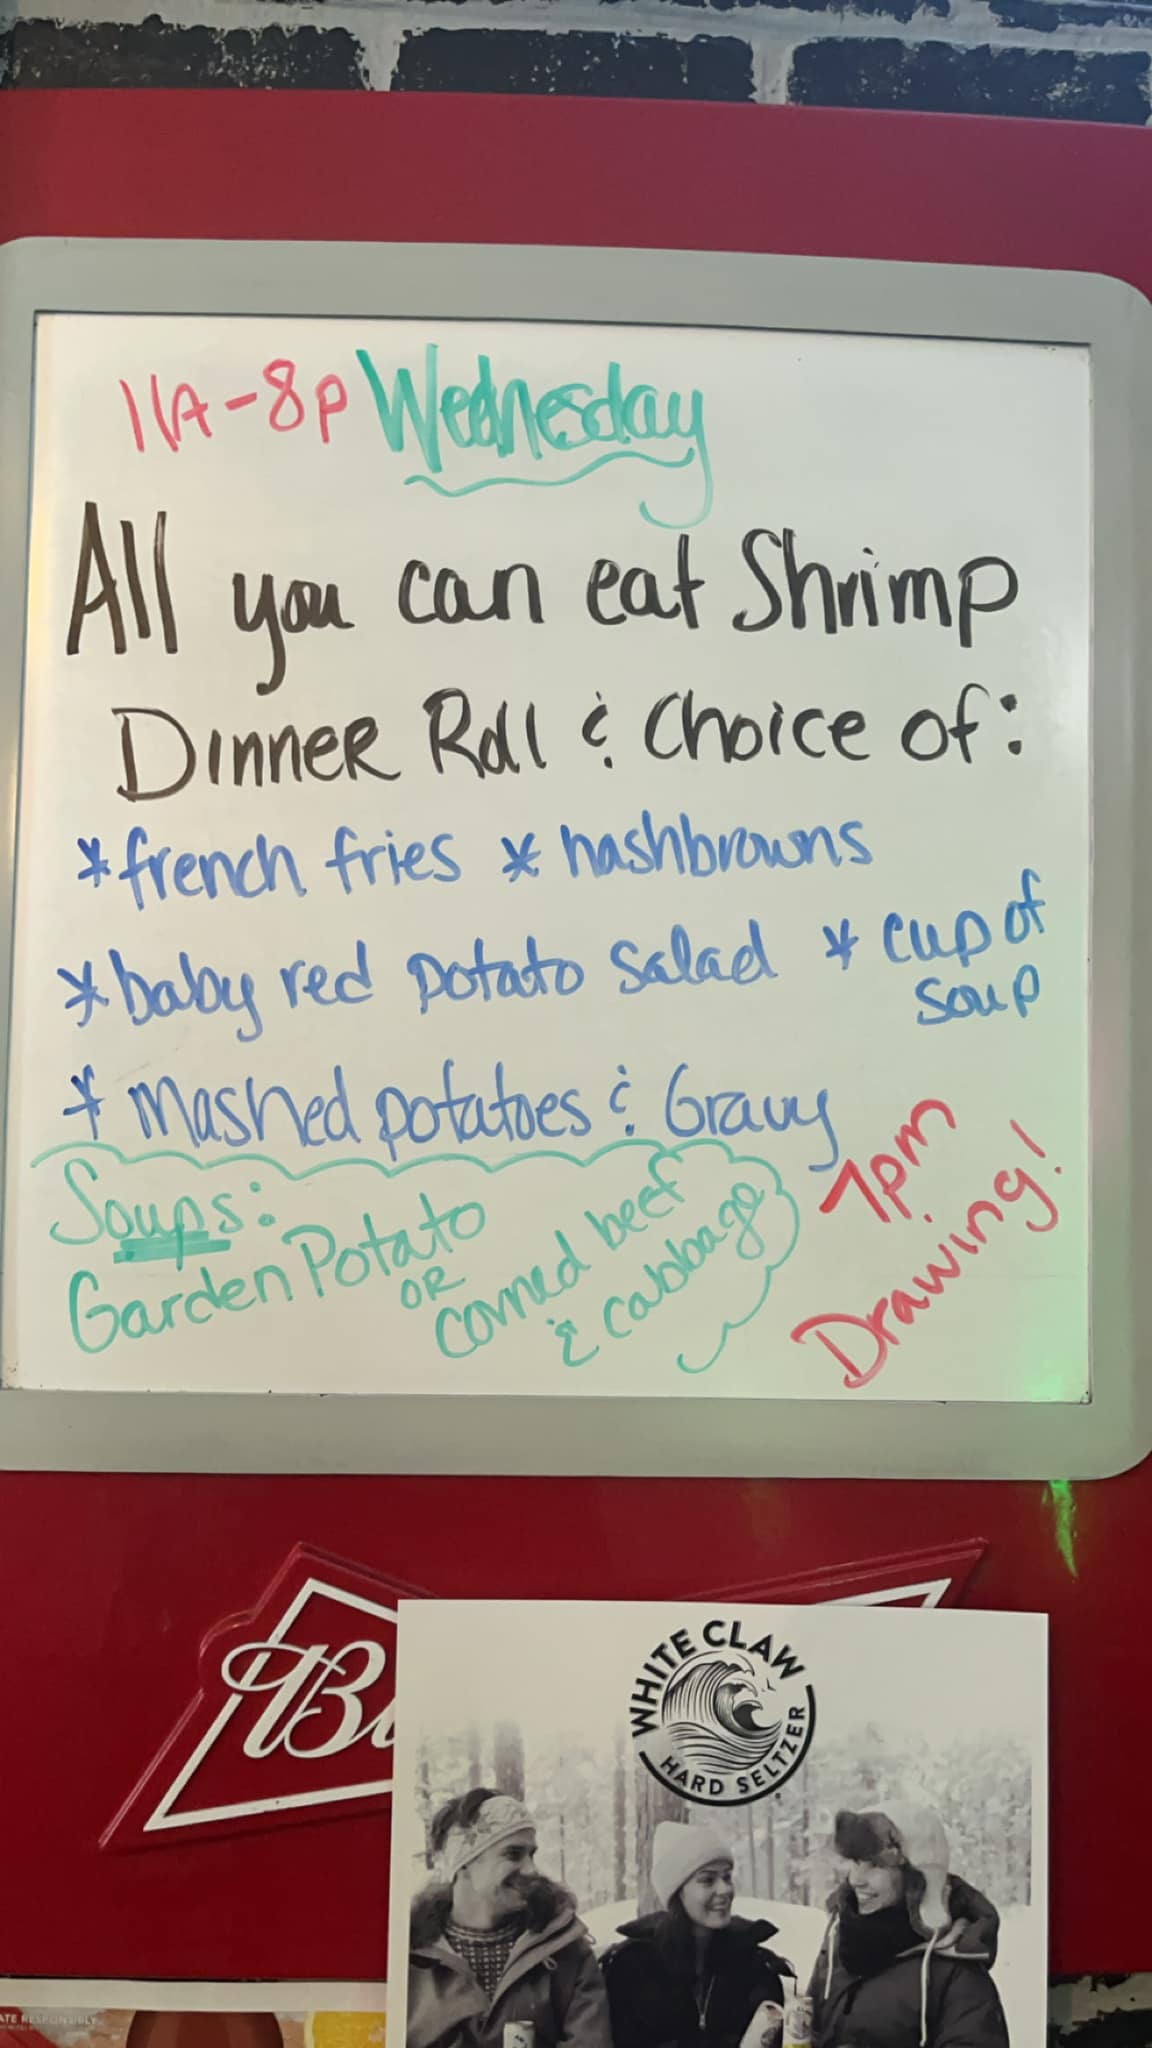 11A-8p Wednesday
All you can eat Shrimp
Dinner Roll & Choice of:
*french fries * hashbrowns
*baby red potato salad * cup of
soup
* Mashed potatoes & Gravy
Soups:
Garden Potato
OR
corned beef
& cabbage
7pm
Drawing!
WHITE CLAW
HARD SELTZER
ATE RESPONSIBLY